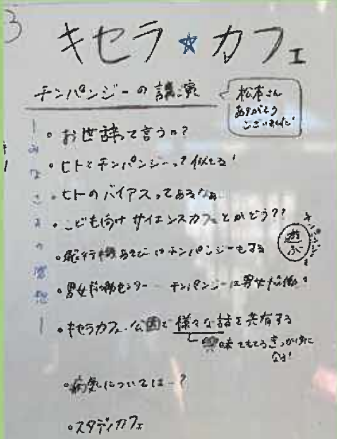 キセラ☆カフェ
チンパンジーの講演
松本さん
ありがとう
ございました!
みなさまの感想
・お世辞って言うの?
・ヒトとチンパンジーって似てる!
・ヒトのバイアスってあるなあ
・こども向けサイエンスカフェとかどう??
・飛行機あそびはチンパンジーもする
遊ぶ
・男女共働センター チンパンジーは男女
・キセラカフェ・公園で様々な話を共有する
味をもてるきっかけに
なる!
・病気については…?
・スタディカフェ